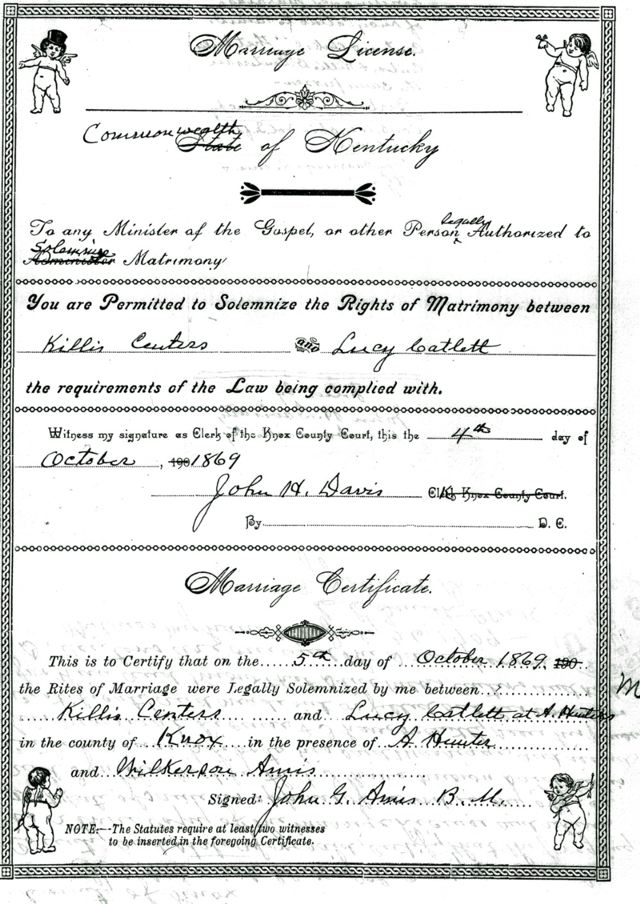 Marriage License.
Commonwealth
State of Kentucky
To any Minister of the Gospel, or other Person legally Authorized to
Solemnize
Administer Matrimony
You are Permitted to Solemnize the Rights of Matrimony between
Killis Centers and Lucy Catlett
the requirements of the Law being complied with.
Witness my signature as Clerk of the Knox County Court, this the 4th day of
October, 190 1869
John H. Davis Clk Knox County Court.
By D. C.
Marriage Certificate.
This is to Certify that on the 5th day of October 1869 190
the Rites of Marriage were Legally Solemnized by me between
Killis Centers and Lucy Catlett at A. Hunters
in the county of Knox in the presence of A Hunter
and Wilkerson Amis
Signed: John G. Amis B. M.
NOTE.--The Statutes require at least two witnesses
to be inserted in the foregoing Certificate.